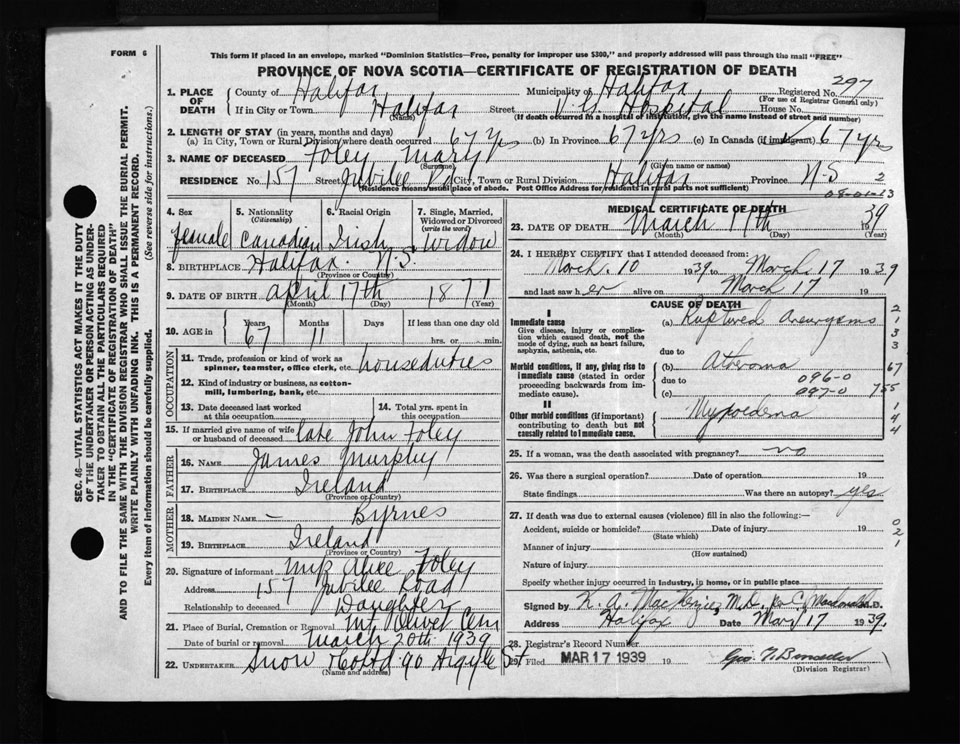 FORM 6
This form if placed in an envelope, marked "Dominion Statistics—Free, penalty for improper use $300," and properly addressed will pass through the mail "FREE"
PROVINCE OF NOVA SCOTIA—CERTIFICATE OF REGISTRATION OF DEATH
297
1. PLACE OF DEATH County of Halifax Municipality of Halifax Registered No.
(For use of Registrar General only)
If in City or Town Halifax Street V.G. Hospital House No.
(Name) (If death occurred in a hospital or institution, give the name instead of street and number)
2. LENGTH OF STAY (in years, months and days)
(a) In City, Town or Rural Division where death occurred 67 yrs (b) In Province 67 yrs (c) In Canada (if immigrant) 67 yrs
3. NAME OF DECEASED Foley Mary
(Surname) (Given name or names)
RESIDENCE No. 157 Street Jubilee Rd City, Town or Rural Division Halifax Province N-S 2
(Residence means usual place of abode. Post Office Address for residents in rural parts not sufficient)
4. Sex female
5. Nationality (Citizenship) Canadian
6. Racial Origin Irish
7. Single, Married, Widowed or Divorced (write the word) Widow
8. BIRTHPLACE Halifax N.S.
(Province or Country)
9. DATE OF BIRTH April 17th 1871
(Month) (Day) (Year)
10. AGE in Years Months Days If less than one day old
67 11 hrs. or min.
OCCUPATION
11. Trade, profession or kind of work as spinner, teamster, office clerk, etc. houseduties
12. Kind of industry or business, as cotton-mill, lumbering, bank, etc.
13. Date deceased last worked at this occupation
14. Total yrs. spent in this occupation
15. If married give name of wife or husband of deceased late John Foley
FATHER
16. NAME James Murphy
17. BIRTHPLACE Ireland
(Province or Country)
MOTHER
18. MAIDEN NAME — Byrnes
19. BIRTHPLACE Ireland
(Province or Country)
20. Signature of informant Miss Alice Foley
Address 157 Jubilee Road
Relationship to deceased Daughter
21. Place of Burial, Cremation or Removal Mt Olivet Cem
Date of burial or removal March 20th 1939
22. UNDERTAKER Snow & Co Ltd 90 Argyle St
(Name and address)
MEDICAL CERTIFICATE OF DEATH
23. DATE OF DEATH March 17th 1939
(Month) (Day) (Year)
24. I HEREBY CERTIFY that I attended deceased from:
March 10 1939 to March 17 1939
and last saw her alive on March 17 19
CAUSE OF DEATH
I
Immediate cause (a) Ruptured Aneurysm
Give disease, injury or complication which caused death, not the mode of dying, such as heart failure, asphyxia, asthenia, etc.
due to
Morbid conditions, if any, giving rise to immediate cause (stated in order proceeding backwards from immediate cause).
(b) Atheroma
due to 096-0
(c) 097-0
2
1
3
3
67
755
1
4
4
II
Other morbid conditions (if important) contributing to death but not causally related to immediate cause.
Myxoedema
25. If a woman, was the death associated with pregnancy? no
26. Was there a surgical operation? Date of operation 19
State findings Was there an autopsy? yes
27. If death was due to external causes (violence) fill in also the following:—
Accident, suicide or homicide? Date of injury 19
(State which)
0
2
1
Manner of injury
(How sustained)
Nature of injury
Specify whether injury occurred in industry, in home, or in public place
Signed by K. A. MacKenzie M.D. per C. MacDonald M.D.
Address Halifax Date Mar 17 1939.
28. Registrar's Record Number
29. Filed MAR 17 1939 Geo.
(Division Registrar)
SEC. 46—VITAL STATISTICS ACT MAKES IT THE DUTY
OF THE UNDERTAKER OR PERSON ACTING AS UNDER-
TAKER TO OBTAIN ALL THE PARTICULARS REQUIRED
IN THE "CERTIFICATE OF REGISTRATION OF DEATH"
AND TO FILE THE SAME WITH THE DIVISION REGISTRAR WHO SHALL ISSUE THE BURIAL PERMIT.
WRITE PLAINLY WITH UNFADING INK. THIS IS A PERMANENT RECORD.
Every item of information should be carefully supplied. (See reverse side for instructions.)